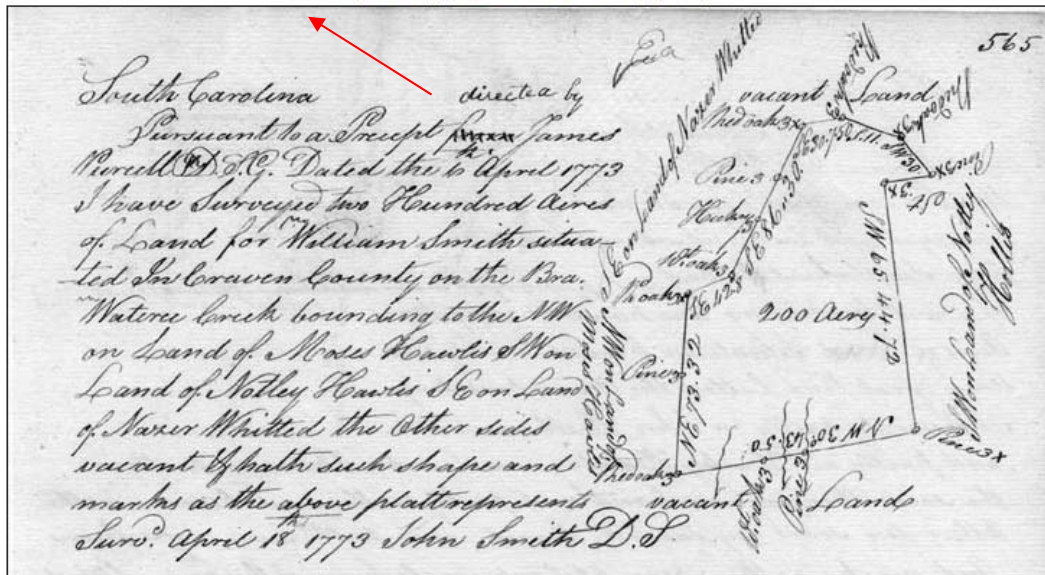 565
South Carolina directed by
Pursuant to a Precept James
Purcell D.S.G. Dated the 6th. April 1773
I have Surveyed two Hundred Acres
of Land for Wm William Smith situa-
ted In Craven County on the Bra.
Wateree Creek bounding to the NW
on Land of Moses Hawlis SW on
Land of Notley Hawlis S E on Land
of Nazer Whitted the Other sides
vacant & hath such shape and
marks as the above platt represents
Survd. April 18th 1773 John Smith D. S
S E on Land of Nazer Whitted
vacant Land
Red oak 3x
Pine 3
Hickry 3
Wt oak 3x
Rd oak 3x
Pine 3
Red oak 3
N W on Land of
Moses Hawlis
N E 73.32
S E 42.8
S E 86.30
S W 65 44.72
200 Acres
S W on Land of Notley
Hollis
Pine 3x
N W 30
43.50
Pine 3
vacant Land